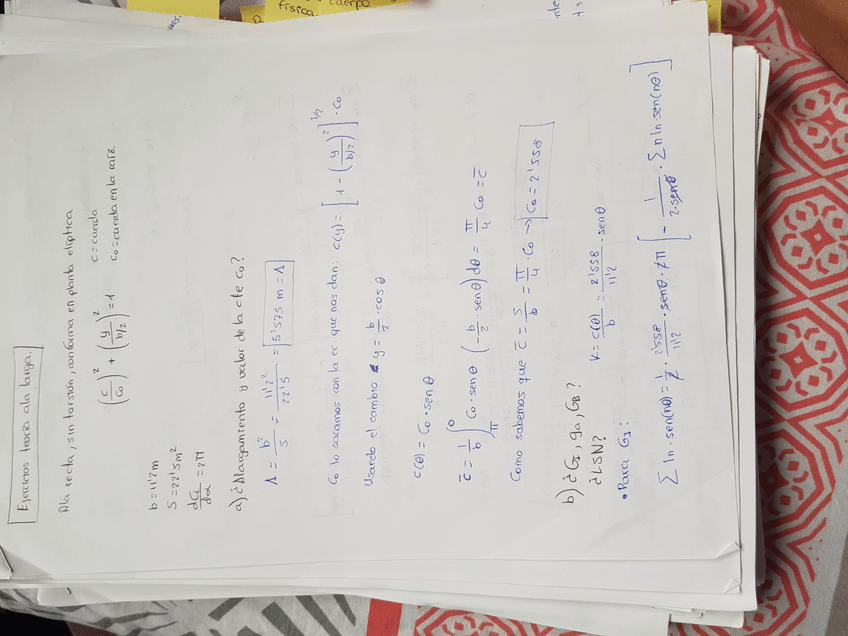 Ejercicios teoría ala larga.
Ala recta, sin torsión, con forma en planta elíptica
(c/c₀)² + (y/(b/2))² = 1 c = cuerda
c₀ = cuerda en la raíz.
b = 11'2 m
S = 22'5 m²
dCl/dα = 2π
a) ¿Alargamiento y valor de la cte c₀?
Λ = b²/S = 11'2²/22'5 = 5'575 m = Λ
C₀ lo sacamos con la ec que nos dan: c(y) = [1 - (y/(b/2))²]^1/2 · c₀
Usando el cambio y = b/2 · cos θ
c(θ) = C₀ · sen θ
c̄ = 1/b ∫_π^0 C₀ · sen θ (-b/2 · sen θ) dθ = π/4 C₀ = c̄
Como sabemos que c̄ = S/b = π/4 · C₀ → C₀ = 2'558
b) ¿G_I, ga, G_B?
¿LSN?
• Para G_I:
k = c(θ)/b = 2'558/11'2 · sen θ
Σ In · sen(nθ) = 1/2 · 2'558/11'2 · sen θ · 2π [ - 1/(2·sen θ) · Σ n In sen(nθ) ]
física
cuerpo